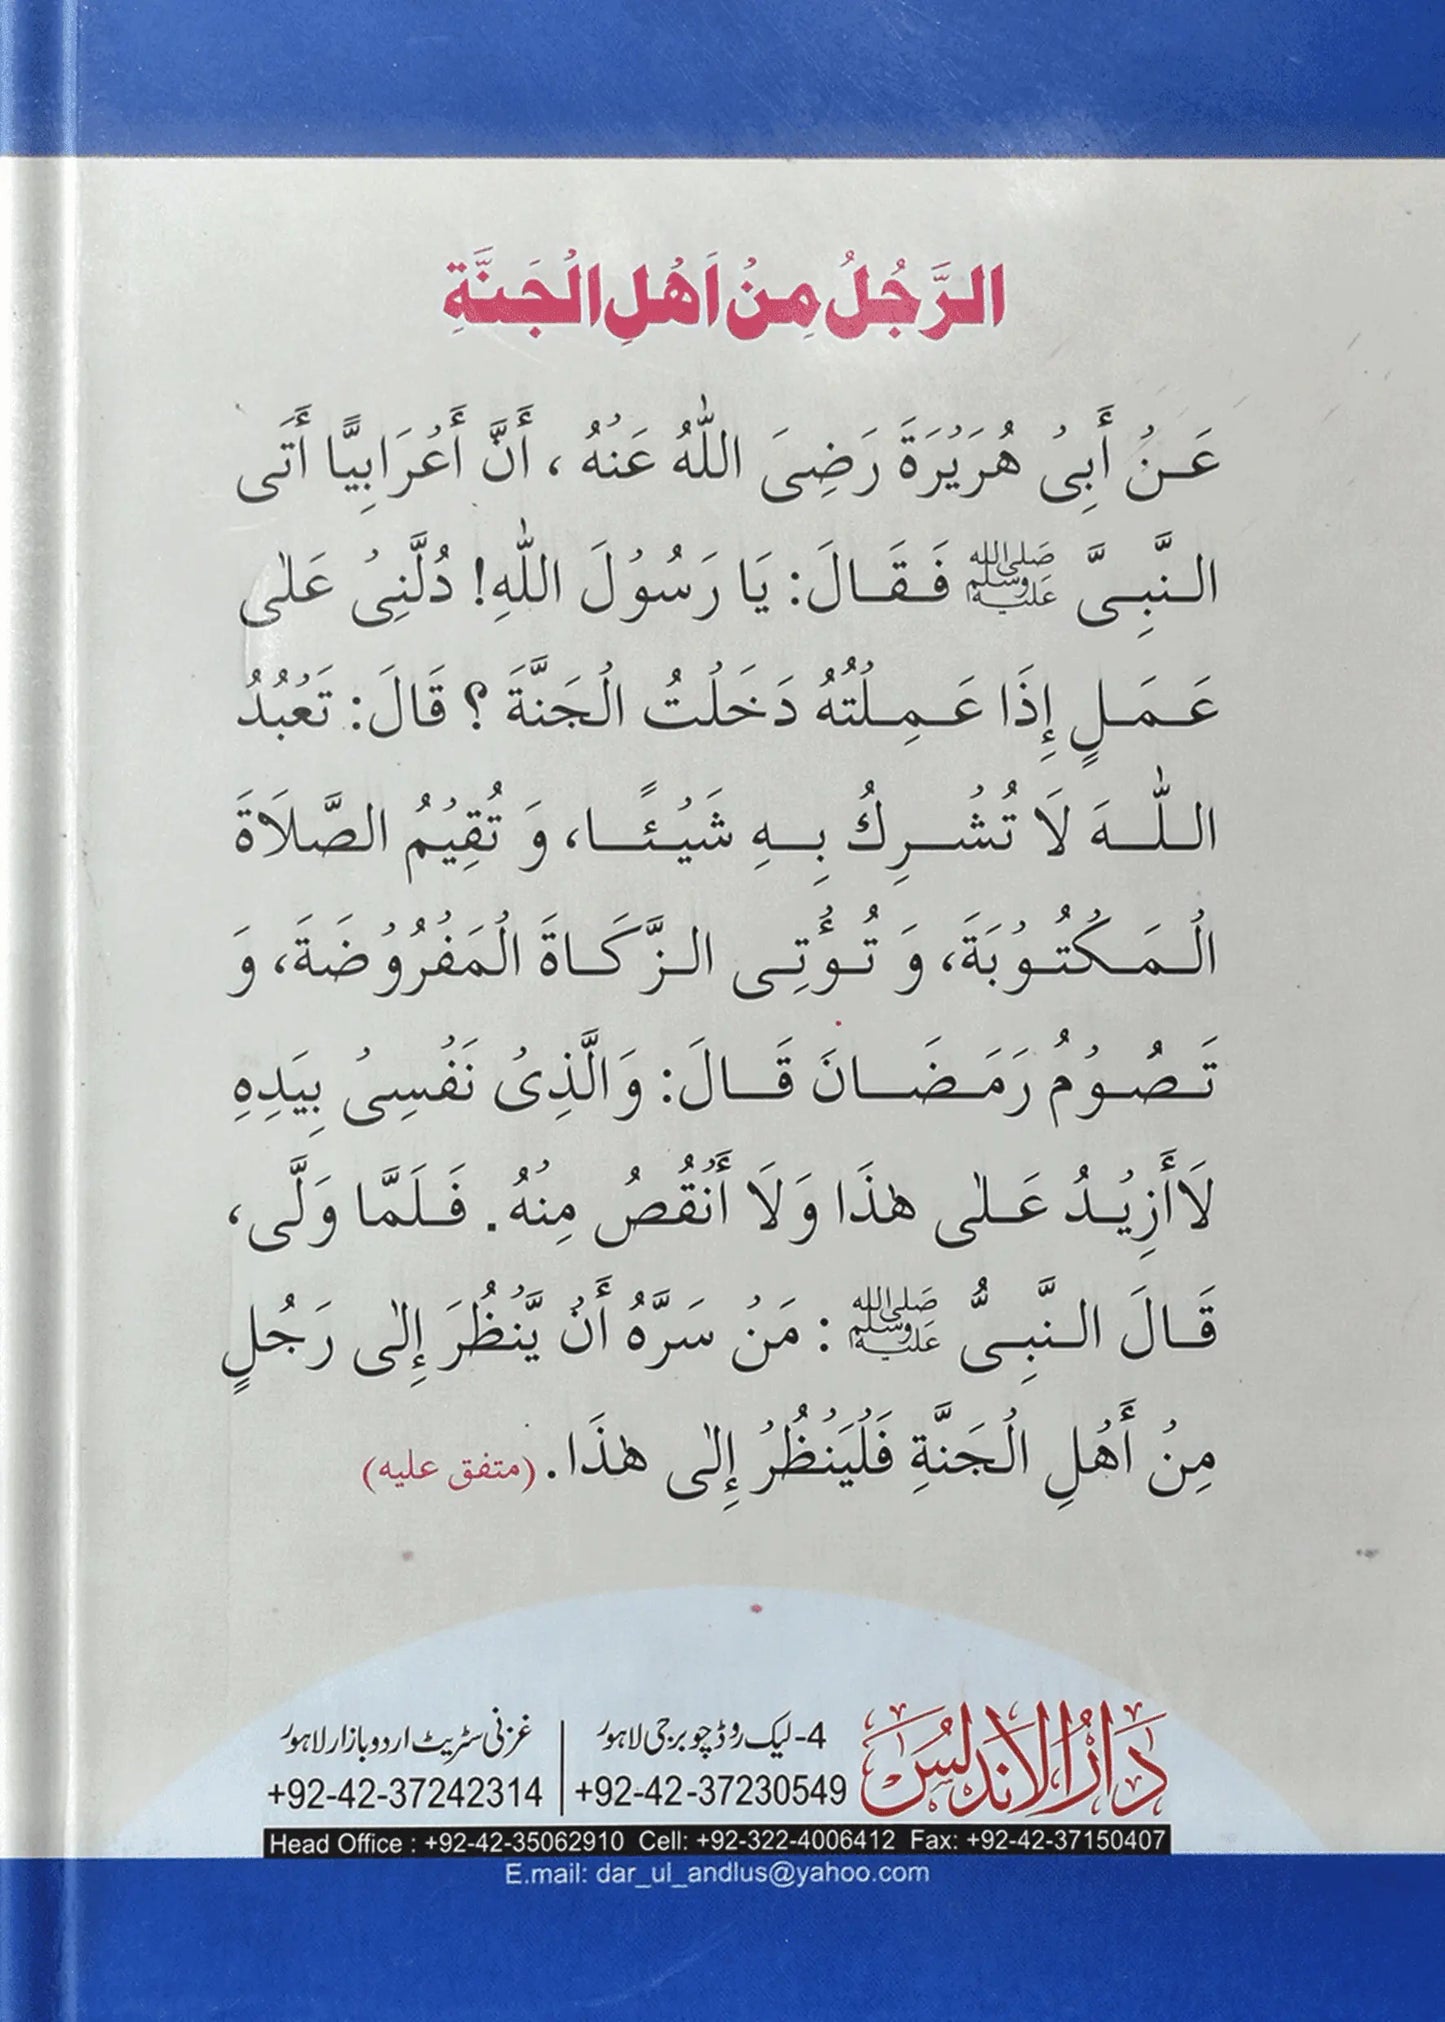 الرَّجُلُ مِنْ اَهْلِ الْجَنَّةِ
عَنْ أَبِیْ هُرَيْرَةَ رَضِیَ اللّٰهُ عَنْهُ ، أَنَّ أَعْرَابِيًّا أَتَی
النَّبِیَّ ﷺ فَقَالَ: يَا رَسُوْلَ اللّٰهِ! دُلَّنِیْ عَلٰی
عَمَلٍ إِذَا عَمِلْتُهُ دَخَلْتُ الْجَنَّةَ ؟ قَالَ: تَعْبُدُ
اللّٰهَ لَا تُشْرِكُ بِهِ شَيْئًا، وَ تُقِيْمُ الصَّلَاةَ
الْمَكْتُوْبَةَ، وَ تُؤْتِی الزَّكَاةَ الْمَفْرُوْضَةَ، وَ
تَصُوْمُ رَمَضَانَ قَالَ: وَالَّذِیْ نَفْسِیْ بِيَدِهِ
لَا أَزِيْدُ عَلٰی هٰذَا وَلَا أَنْقُصُ مِنْهُ. فَلَمَّا وَلَّی،
قَالَ النَّبِیُّ ﷺ : مَنْ سَرَّهُ أَنْ يَّنْظُرَ إِلٰی رَجُلٍ
مِنْ أَهْلِ الْجَنَّةِ فَلْيَنْظُرْ إِلٰی هٰذَا. (متفق عليه)
دارالاندلس
4- لیک روڈ چوبرجی لاہور | غزنی سٹریٹ اردو بازار لاہور
+92-42-37230549 | +92-42-37242314
Head Office : +92-42-35062910 Cell: +92-322-4006412 Fax: +92-42-37150407
E.mail: dar_ul_andlus@yahoo.com